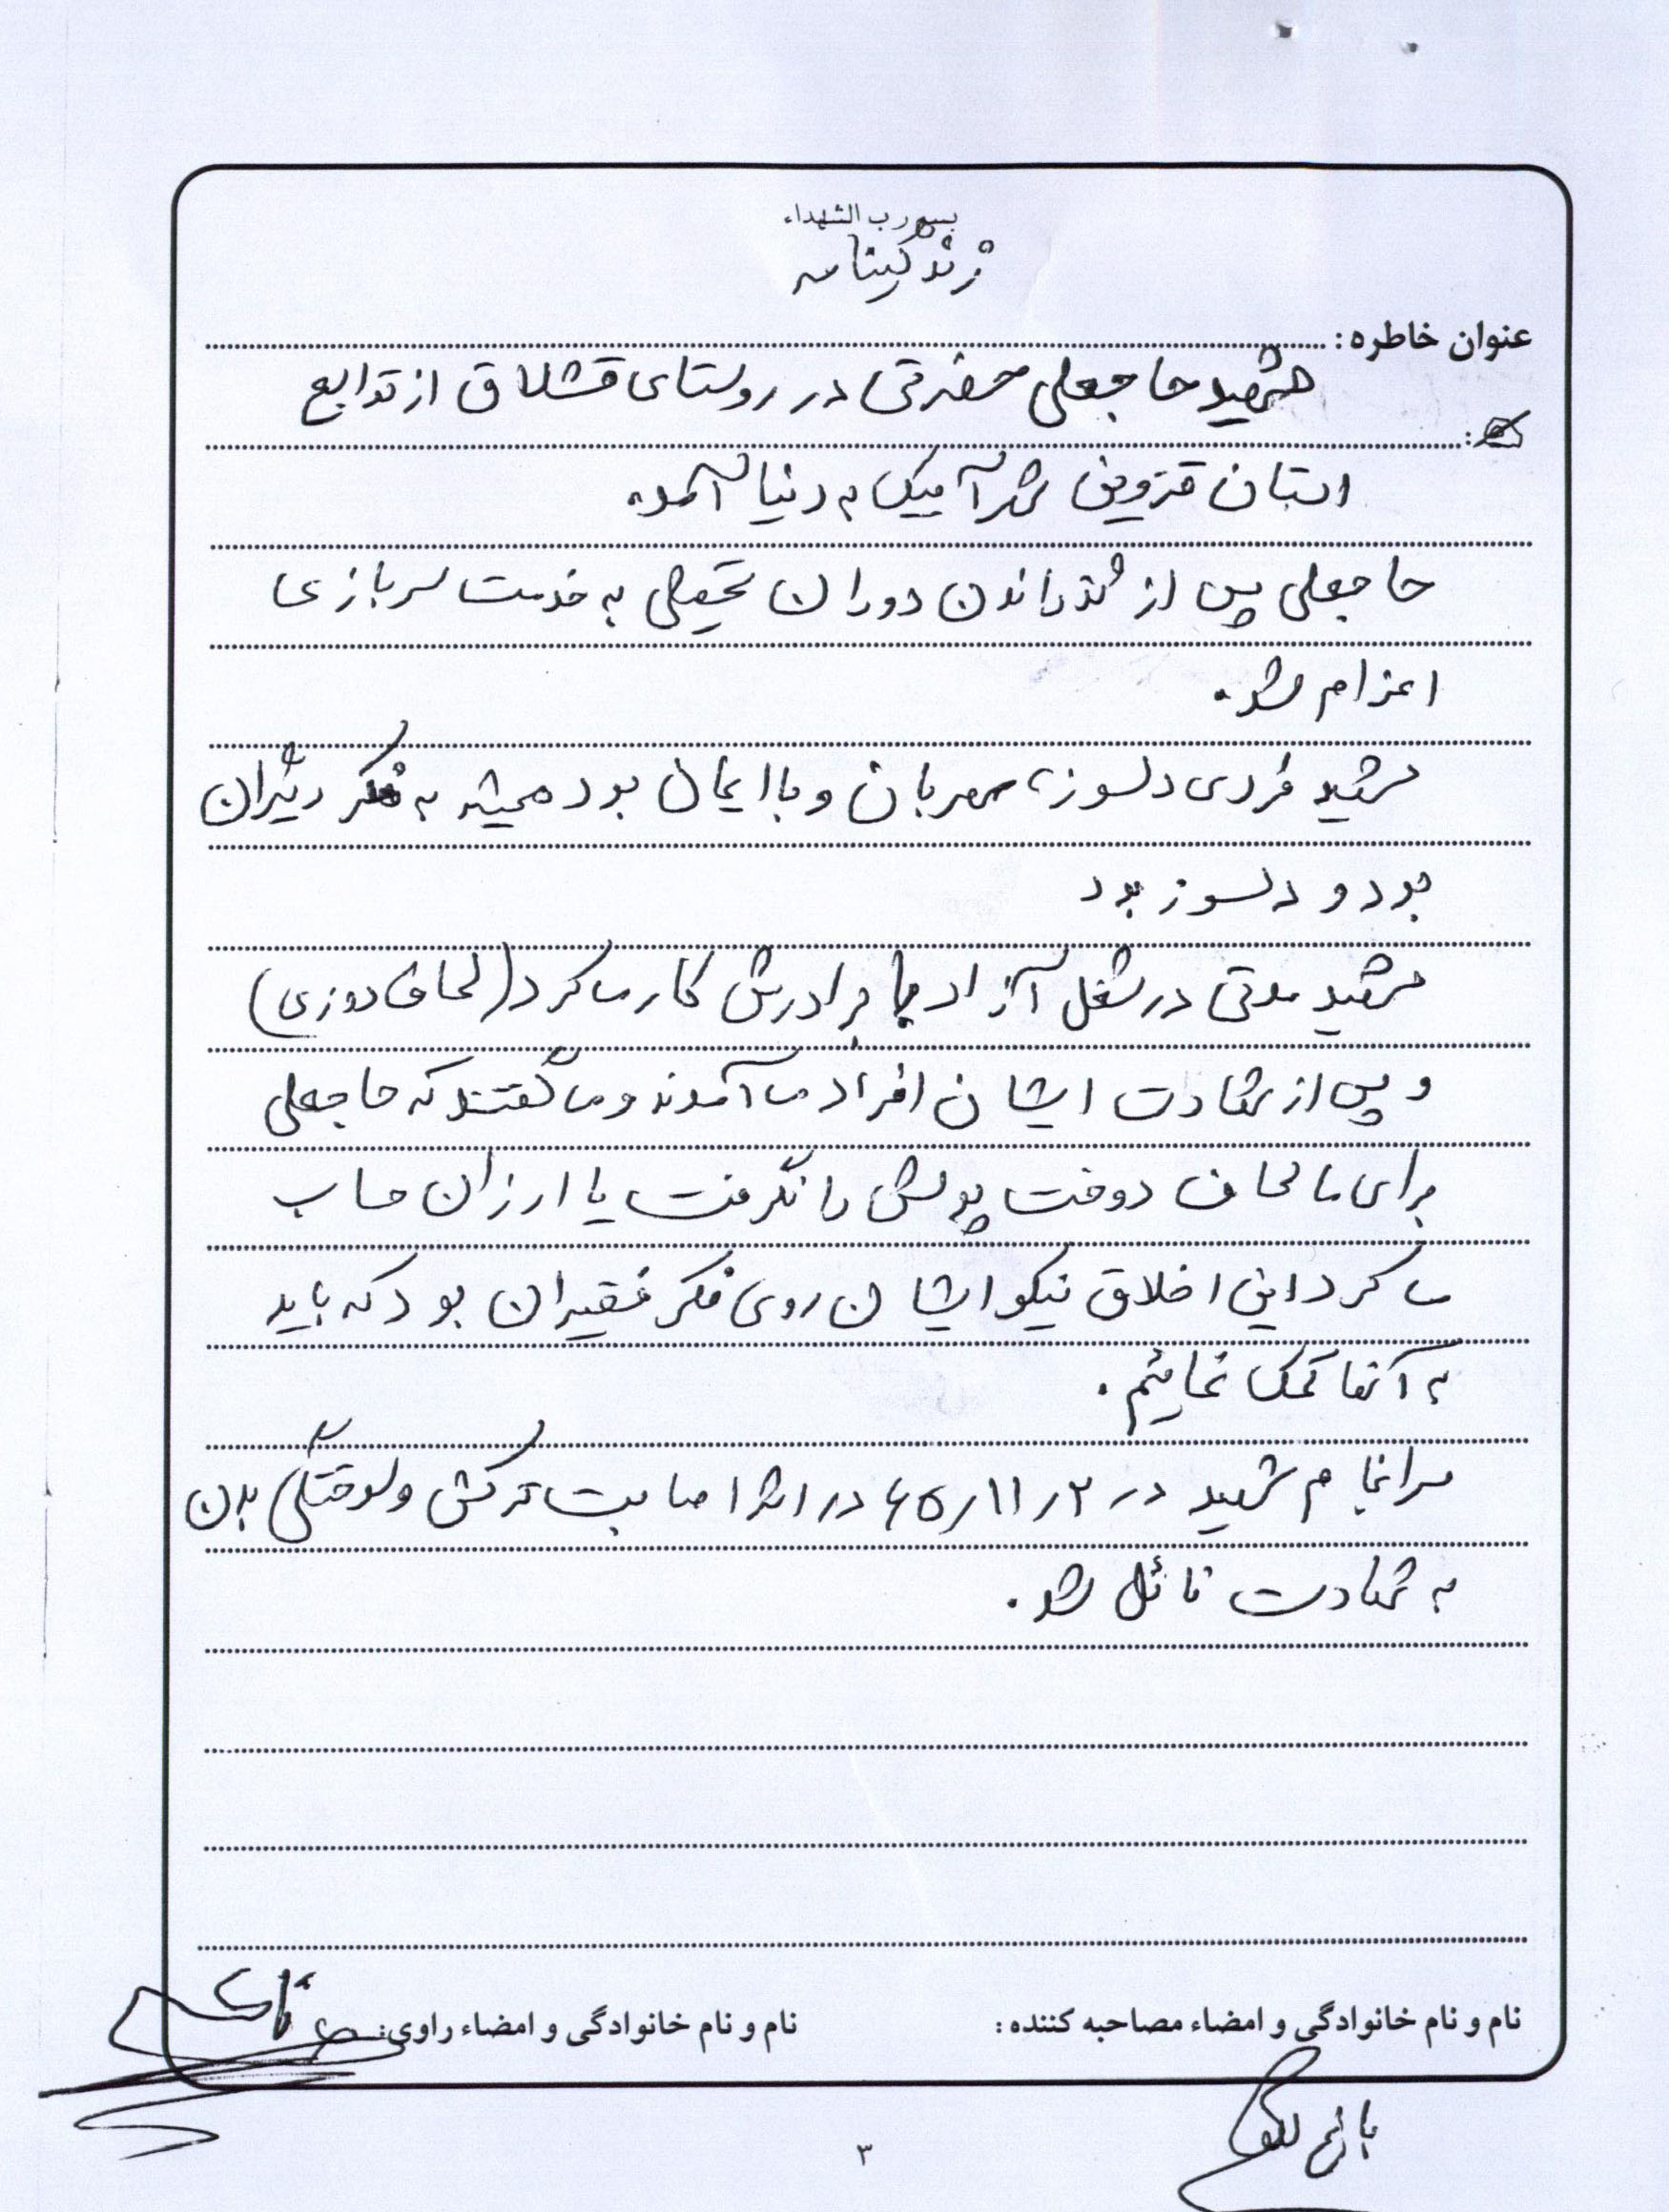 بسم رب الشهداء
زندگینامه
عنوان خاطره:
شهید حاجعلی حضرتی در روستای قشلاق از توابع
استان قزوین شهر آبیک به دنیا آمد.
حاجعلی پس از گذراندن دوران تحصیلی به خدمت سربازی
اعزام شد.
شهید فردی دلسوز، مهربان و با ایمان بود همیشه به فکر دیگران
بود و دلسوز بود
شهید مدتی در شغل آزاد با برادرش کار می کرد (لحاف دوزی)
و پس از شهادت ایشان افراد می آمدند و می گفتند که حاجعلی
برای ما لحاف دوخت پولش را نگرفت یا ارزان حساب
می کرد این اخلاق نیکو ایشان روی فکر فقیران بود که باید
به آنها کمک نمائیم.
سرانجام شهید در ۶۵/۱۱/۲ در اثر اصابت ترکش و سوختگی بدن
به شهادت نائل شد.
نام و نام خانوادگی و امضاء مصاحبه کننده:
نام و نام خانوادگی و امضاء راوی:
۳